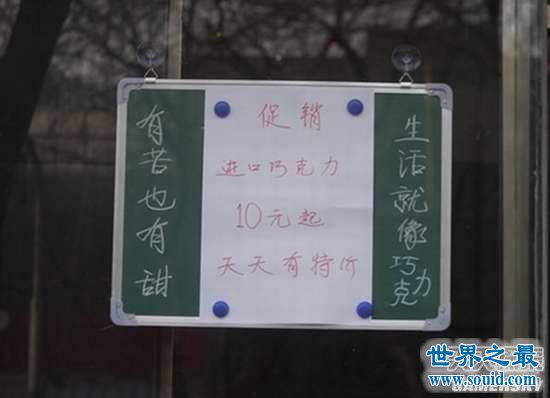 生活就像巧克力
有苦也有甜
促销
进口巧克力
10元起
天天有特价
世界之最
www.souid.com
GAMERSKY